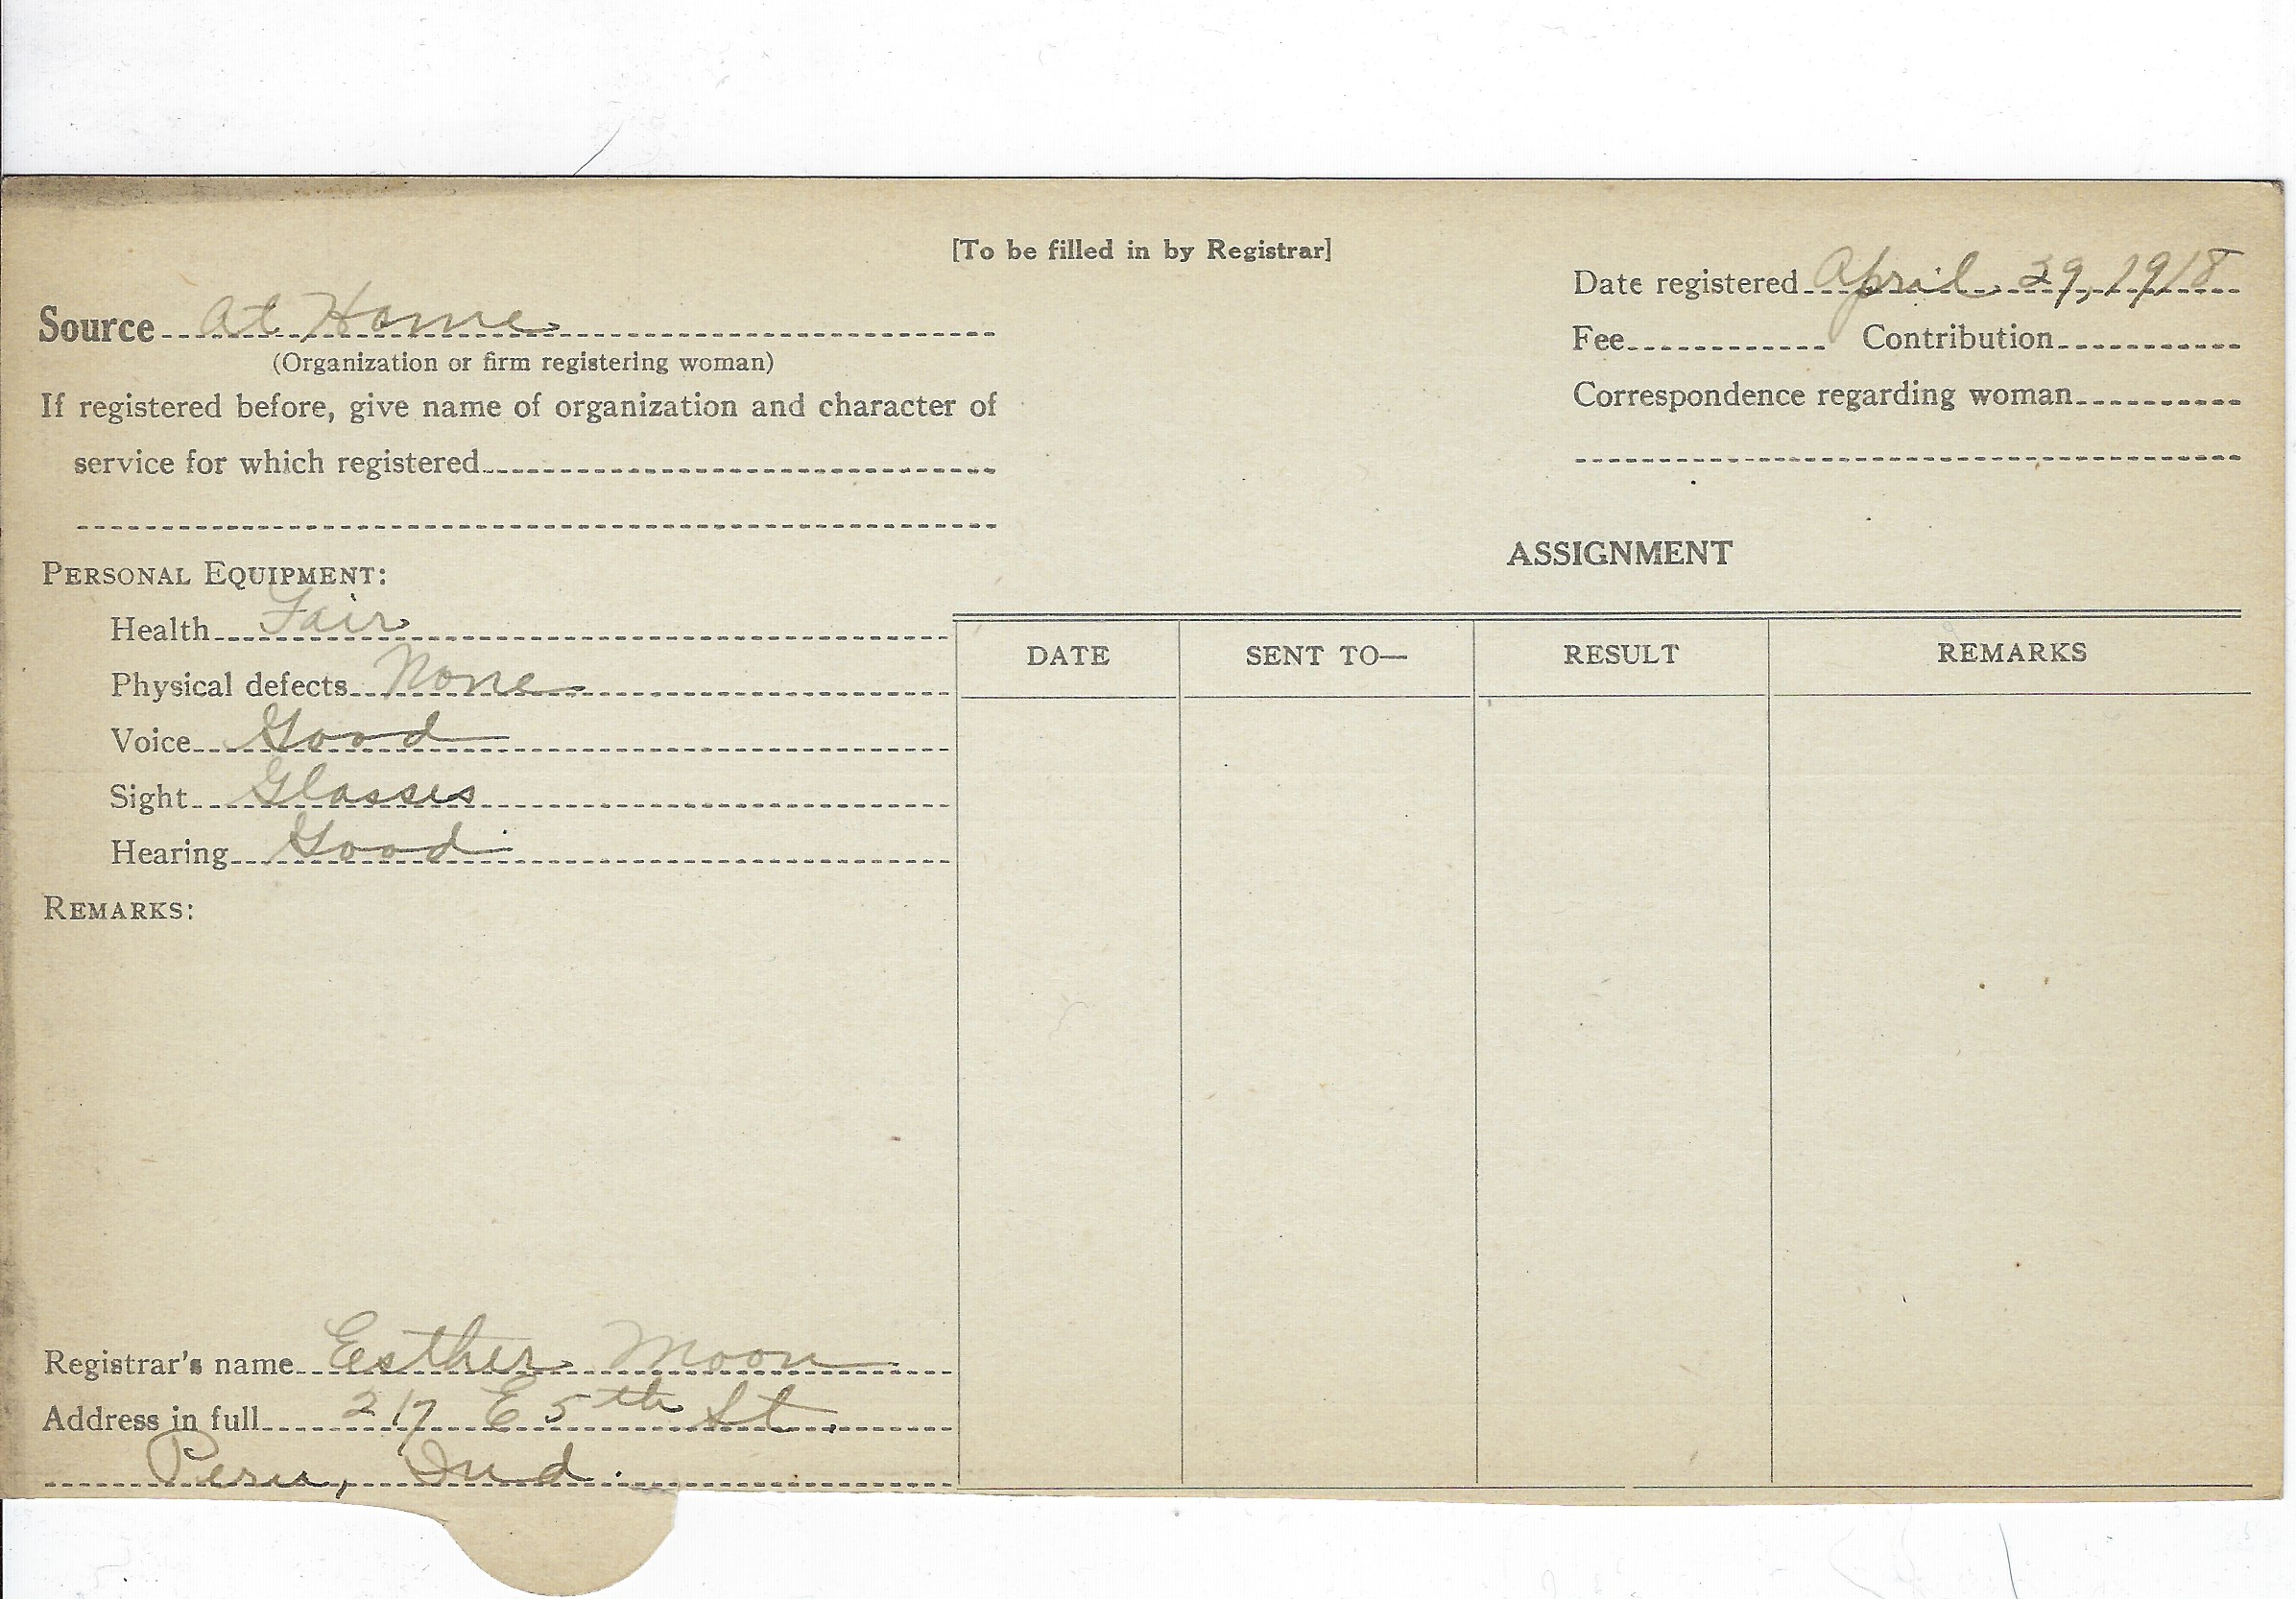 [To be filled in by Registrar]
Date registered April 29, 1918
Source At Home
(Organization or firm registering woman)
Fee Contribution
If registered before, give name of organization and character of
service for which registered
Correspondence regarding woman
PERSONAL EQUIPMENT:
Health Fair
Physical defects None
Voice Good
Sight Glasses
Hearing Good
REMARKS:
ASSIGNMENT
DATE SENT TO— RESULT REMARKS
Registrar's name Esther Moon
Address in full 217 E 5th St.
Peru, Ind.